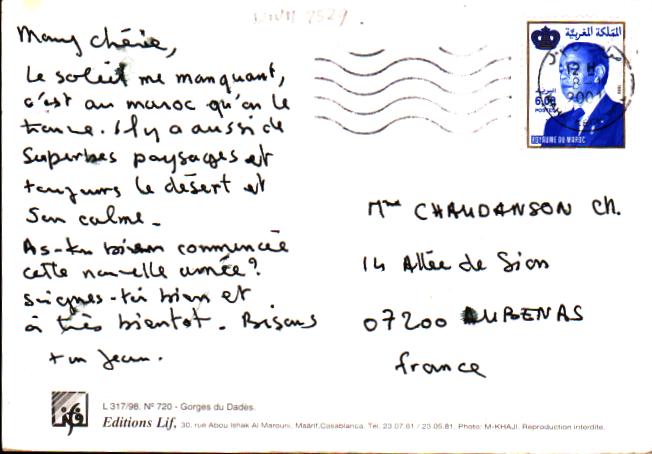 Mamy chérie,
Le soleil me manquant,
c'est au maroc qu'on le
trouve. Il y a aussi de
superbes paysages et
toujours le désert et
son calme.
As-tu bien commencée
cette nouvelle année?
Soignes-toi bien et
à très bientot. Bisous
ton Jean.
المملكة المغربية
البريد
6,00
POSTES
ROYAUME DU MAROC
12 H
8
2001
Mme CHAUDANSON Ch.
14 Allée de Sion
07200 AUBENAS
france
lif
L 317/98. Nº 720 - Gorges du Dadès.
Editions Lif, 30, rue Abou Ishak Al Marouni, Maârif.Casablanca. Tel. 23.07.61 / 23.05.81. Photo: M-KHAJI. Reproduction interdite.